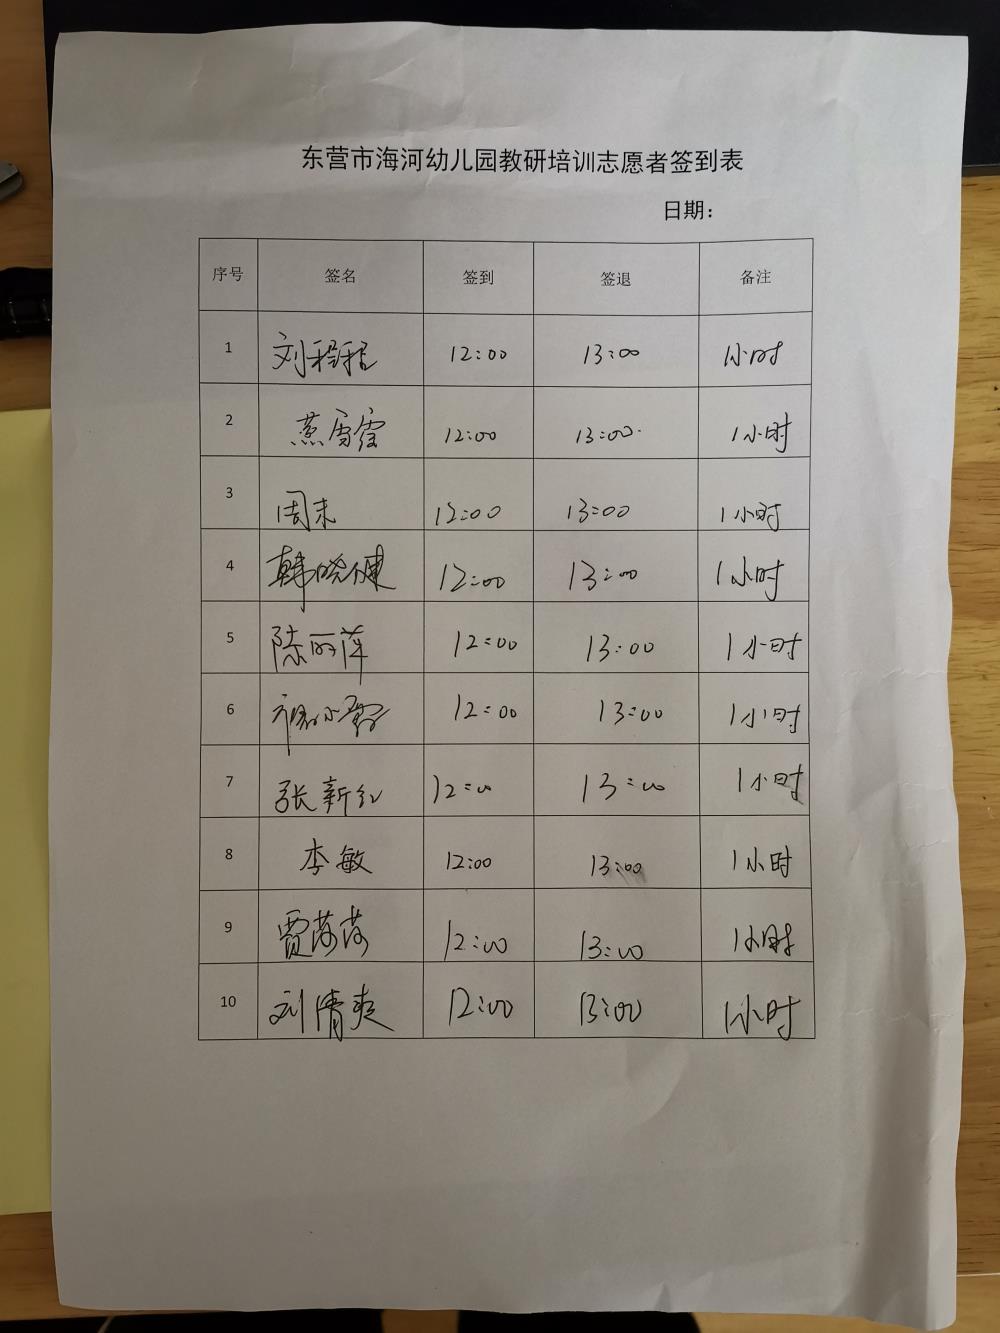 东营市海河幼儿园教研培训志愿者签到表
日期：
序号 签名 签到 签退 备注
1 刘程程 12:00 13:00 1小时
2 燕雪霞 12:00 13:00 1小时
3 周末 12:00 13:00 1小时
4 韩晓健 12:00 13:00 1小时
5 陈丽萍 12:00 13:00 1小时
6 12:00 13:00 1小时
7 张新红 12:00 13:00 1小时
8 李敏 12:00 13:00 1小时
9 贾芮芮 12:00 13:00 1小时
10 刘清爽 12:00 13:00 1小时